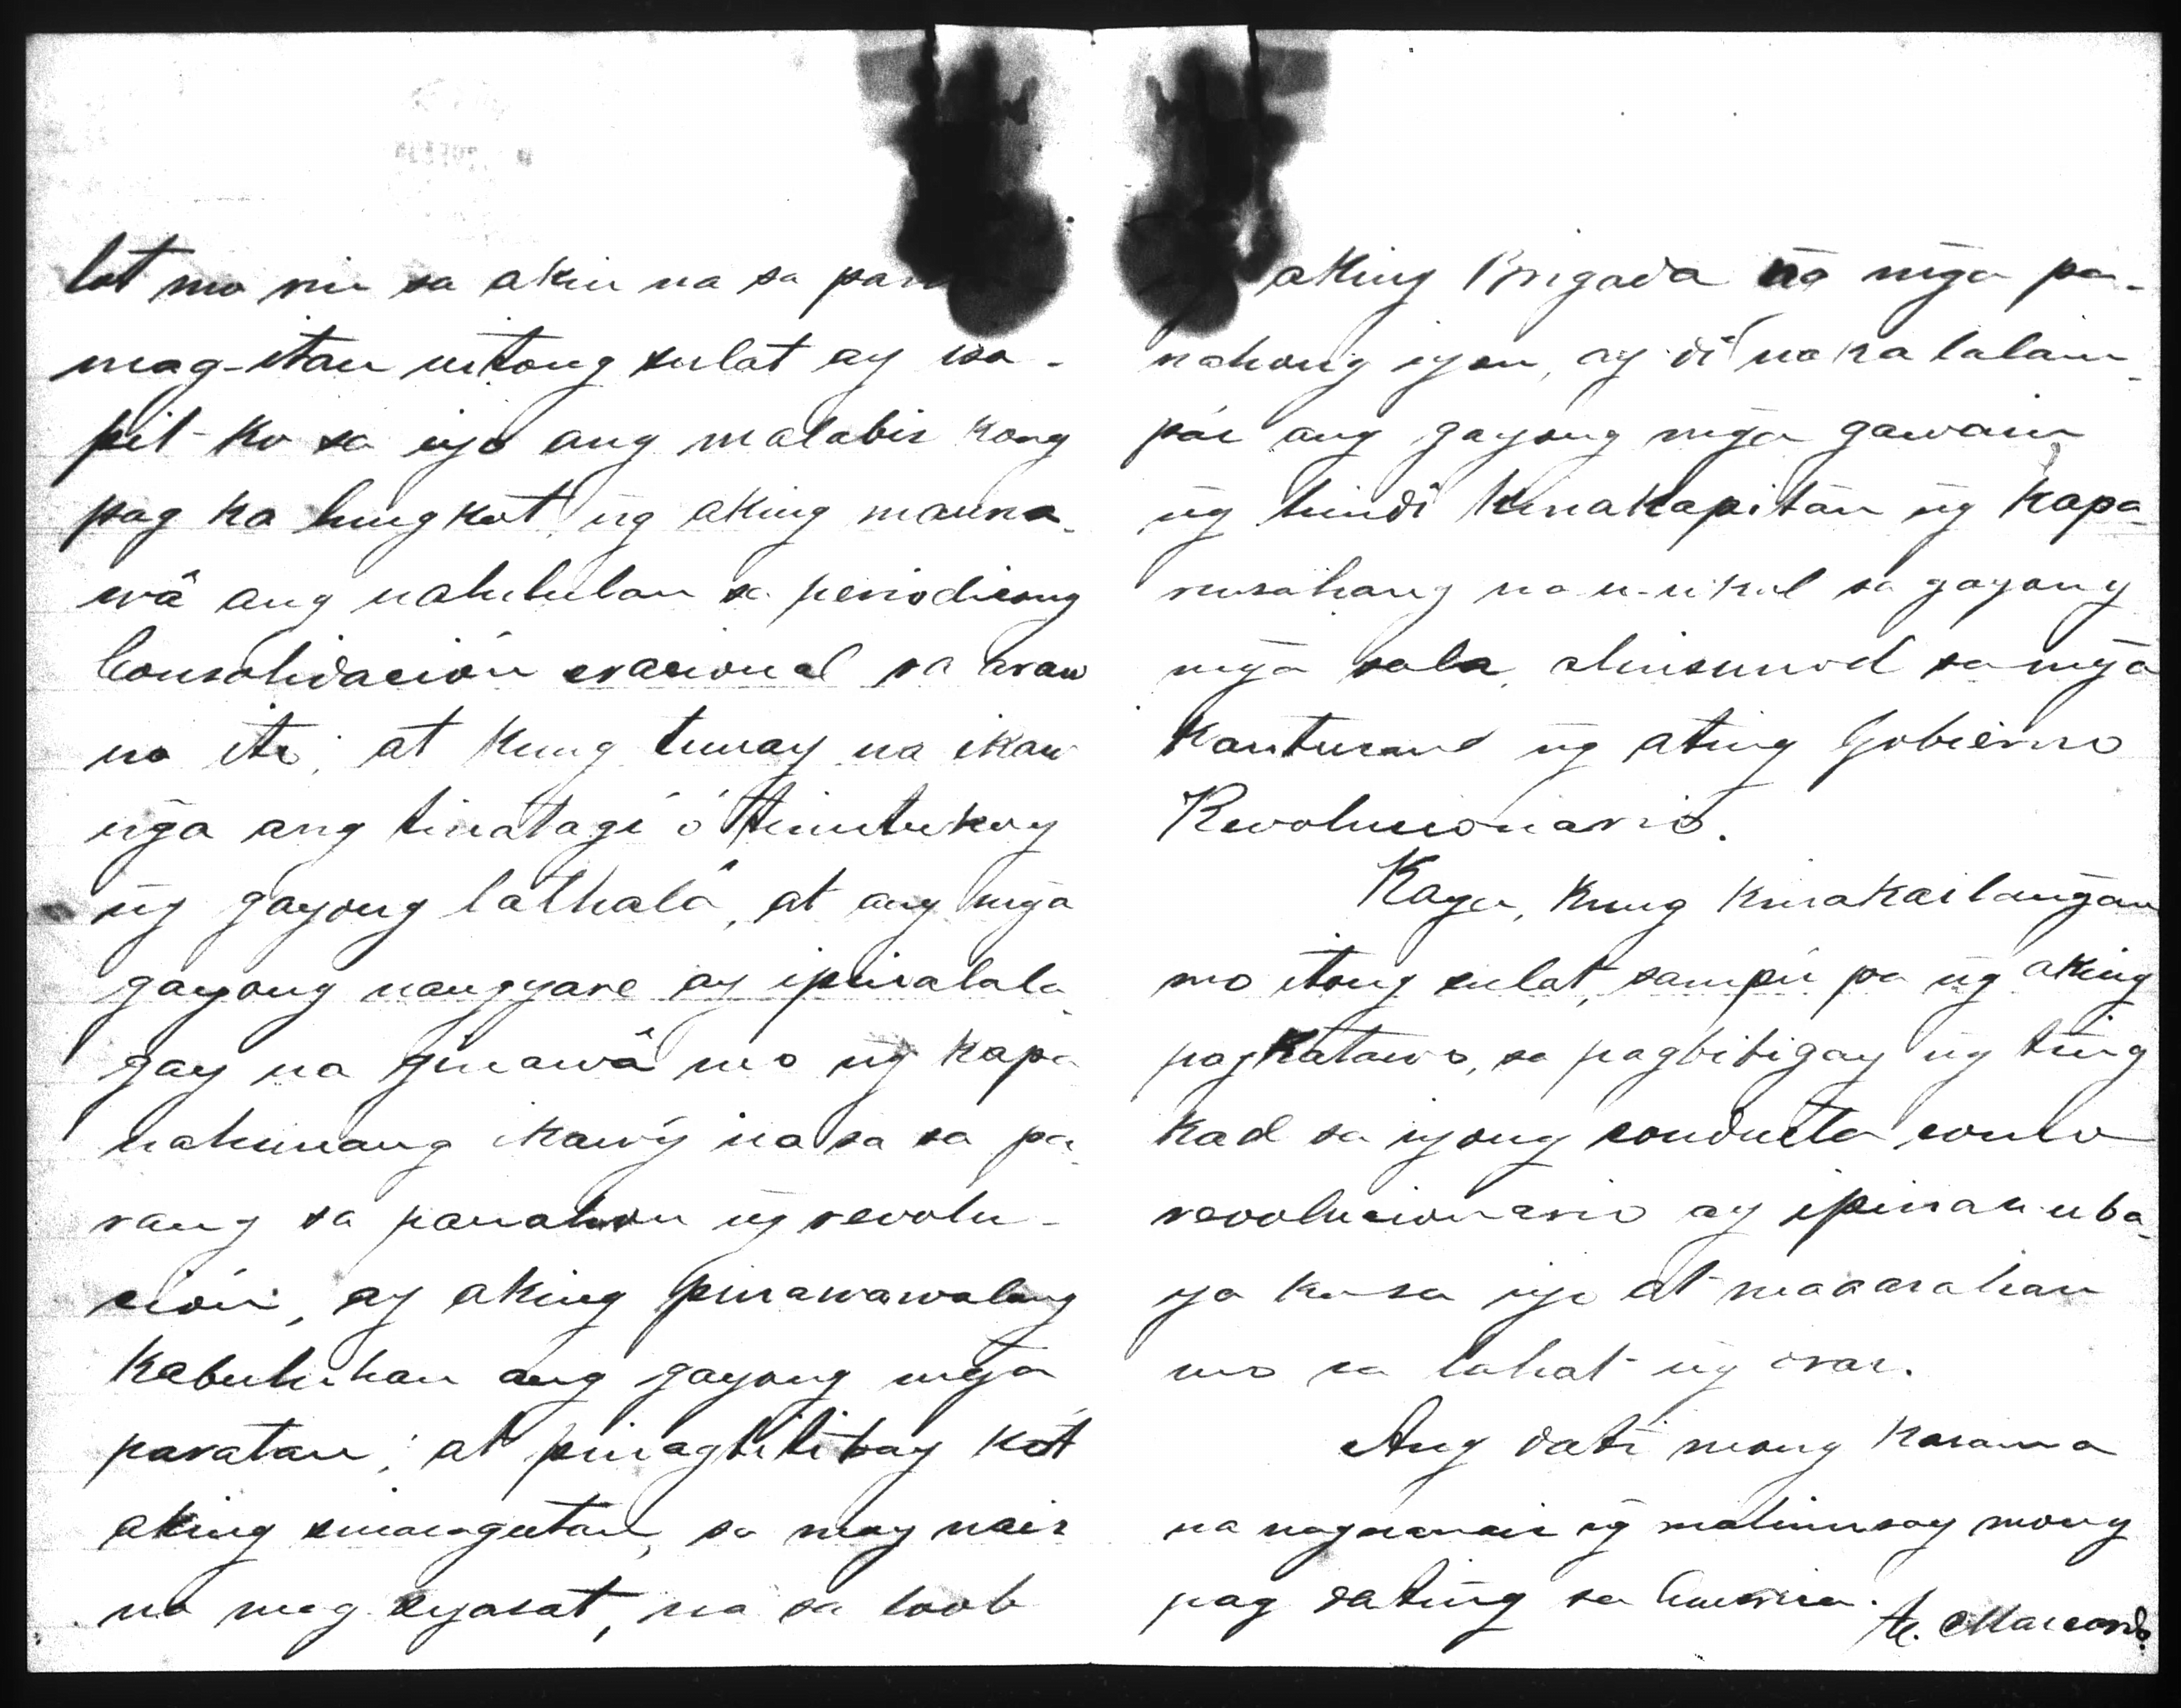 lat mo rin sa akin na sa pam
mag-itan nitong sulat ay isa-
pit-ko sa iyo ang malabis kong
pag ka lungkot, ng̃ aking mauna-
wâ ang nalulatlan sa periodicong
Consolidación Nacional sa araw
na ito; at kung tunay na ikaw
ng̃a ang tinatagi ó tinutukoy
ng̃ gayong lathalâ, at ang mg̃a
gayong nangyare ay ipinalala-
gay na ginawâ mo ng̃ kapa
nahunang ikaw'y nasa sa pa-
rang sa panahon ng̃ revolu-
ción, ay aking pinawawalang
kabuluhan ang gayong mg̃a
paratan; at pinagtitibay ko't
aking sinasagutan, sa may nais
na mag siyasat, na sa loob
aking Brigada ng̃ mg̃a pa-
nahong iyon, ay di nakalalam-
pás ang gayong mg̃a gawain
ng̃ hindi kinakapitan ng̃ kapa-
rusahang na u-ukul sa gayong
mg̃a sala, alinsunod sa mg̃a
kautusan ng̃ ating Gobierno
Revolucionario.
Kaya, kung kinakailang̃an
mo itong sulat, sampú pa ng̃ aking
pagkatawo, sa pagbibigay ng̃ ting
kad sa iyong conducta como
revolucionario ay ipinauuba-
ya ko sa iyo at maaasahan
mo sa lahat ng̃ oras.
Ang dati mong kasama
na nagnanais ng̃ malinusay mong
pag dating sa America.